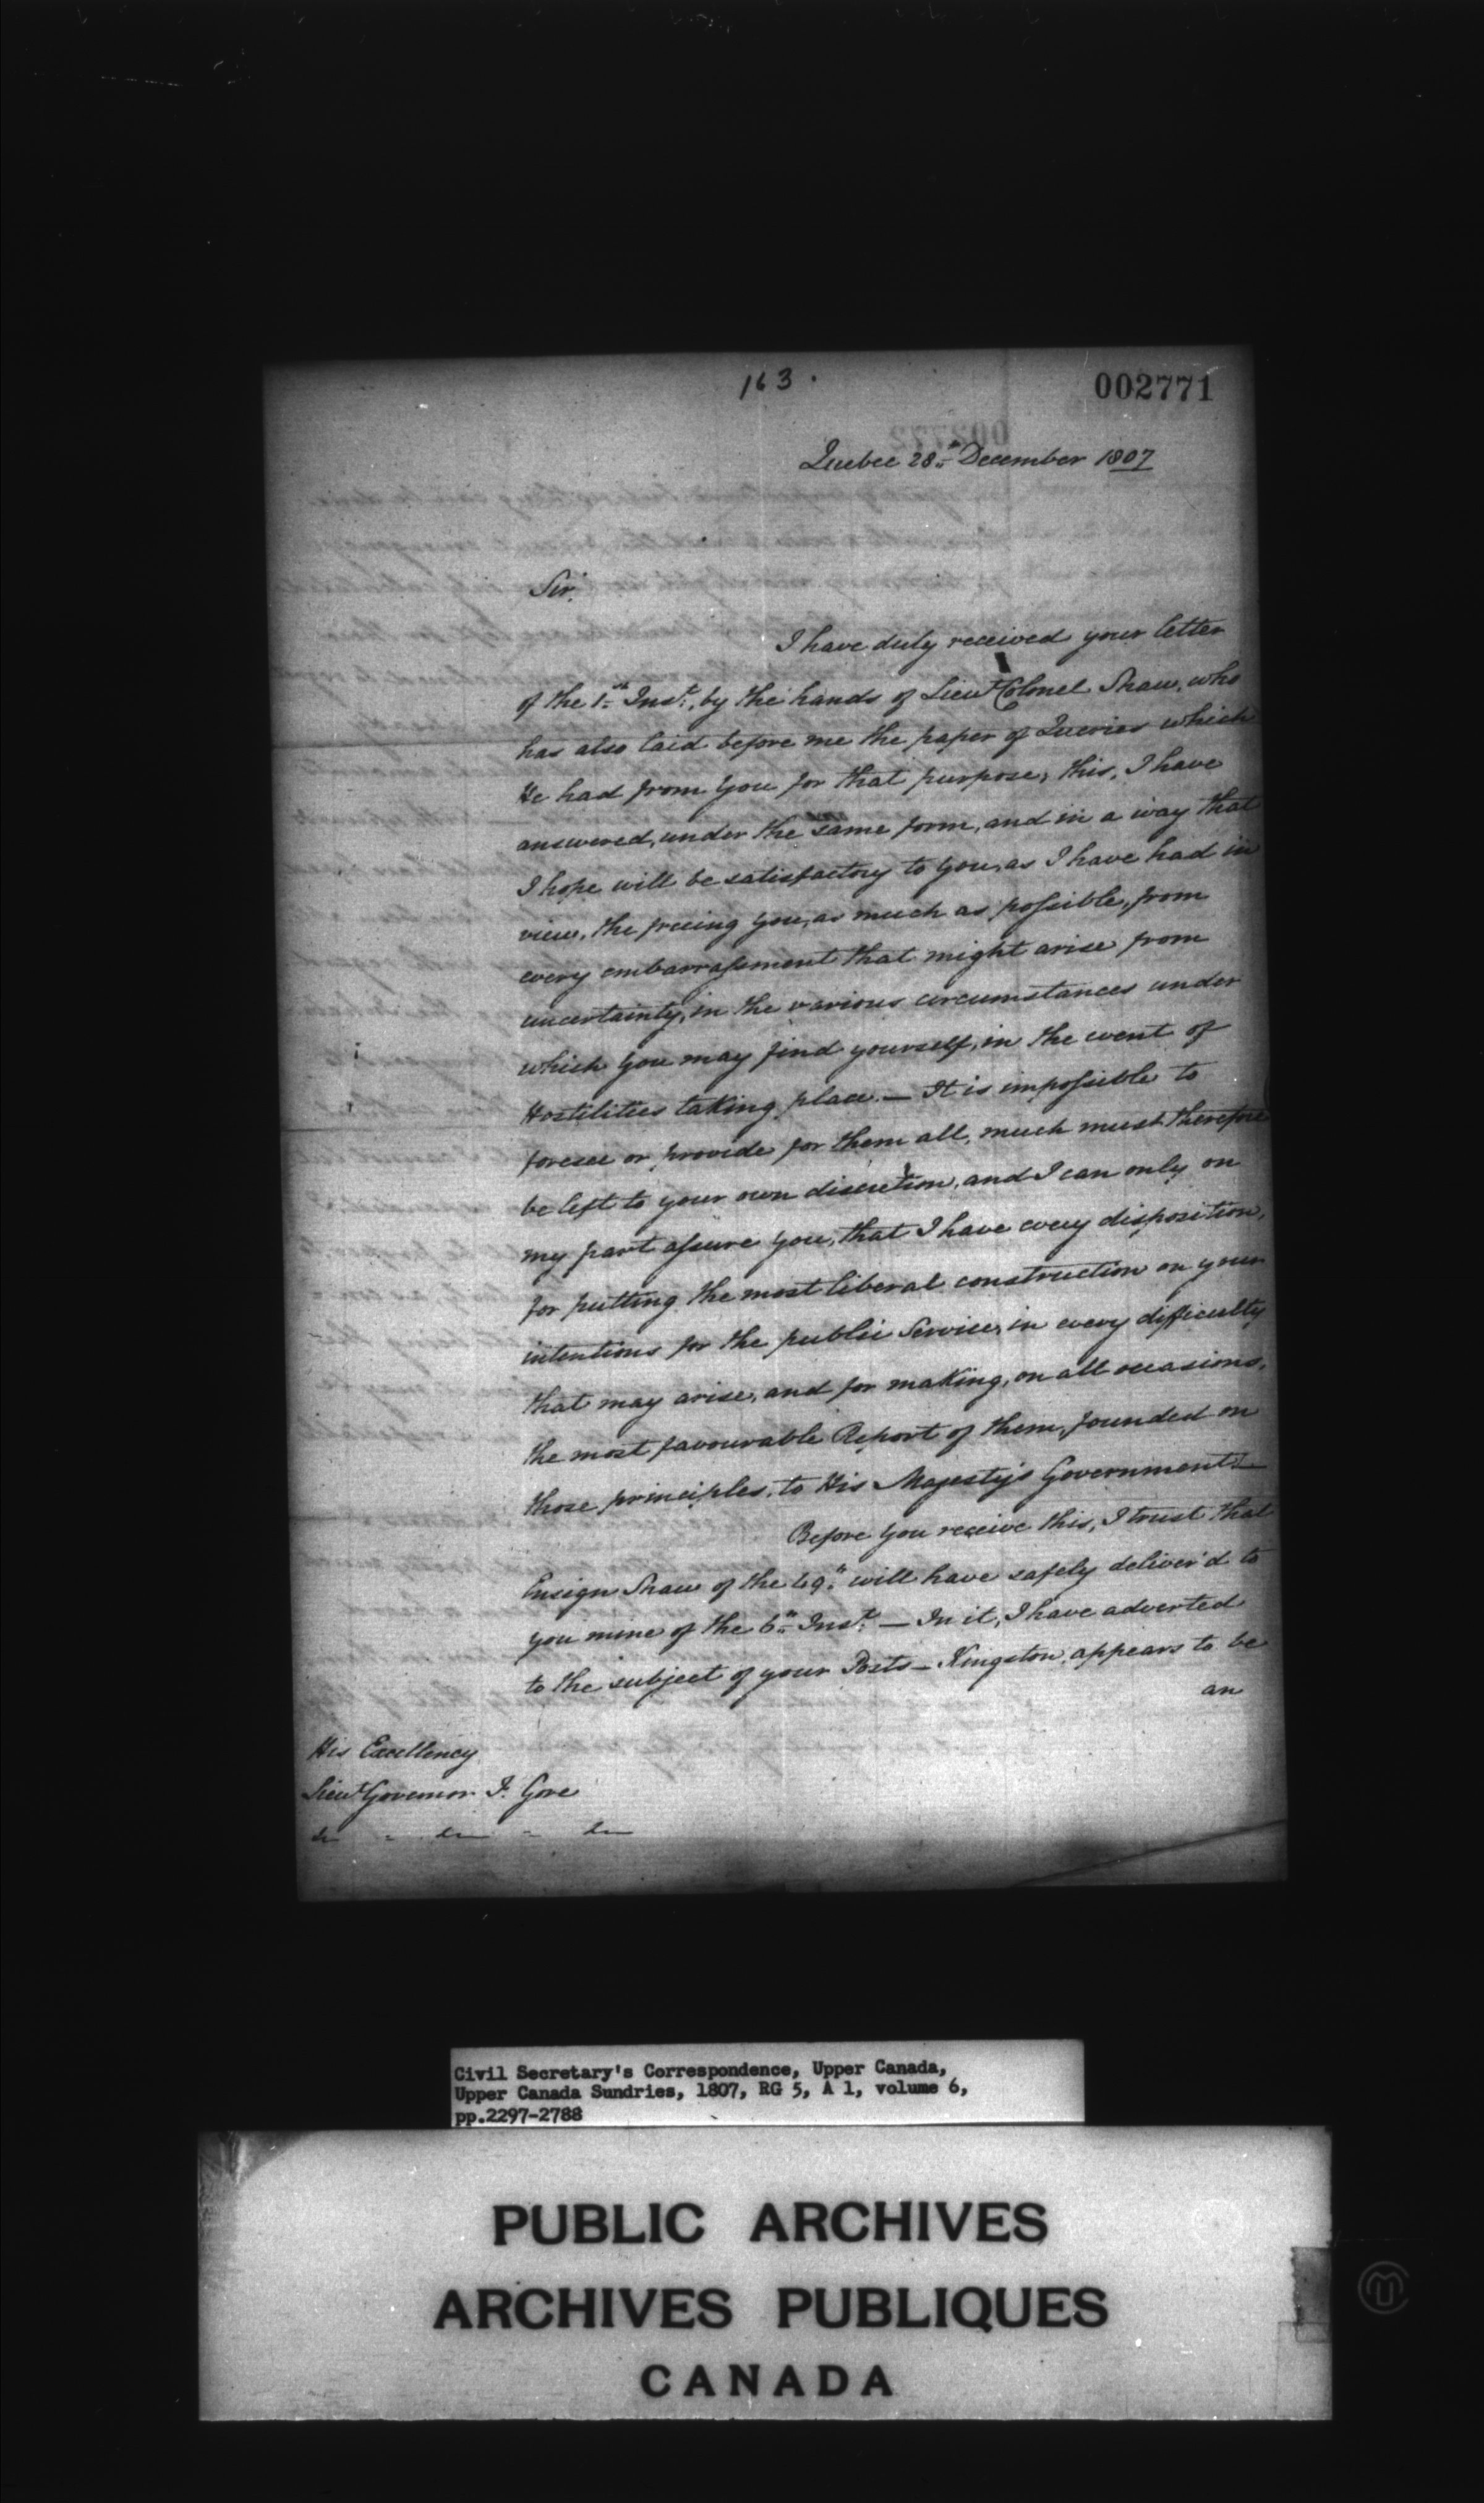 163.
002771
Quebec 28th December 1807
Sir,
I have duly received your letter
of the 1st Inst:, by the hands of Lieut Colonel Shaw, who
has also laid before me the paper of Queries which
He had from You for that purpose; this, I have
answered, under the same form, and in a way that
I hope will be satisfactory to You, as I have had in
view, the freeing You, as much as possible, from
every embarrassment that might arise from
uncertainty, in the various circumstances under
which You may find yourself, in the event of
Hostilities taking place. — It is impossible to
foresee or provide for them all, much must therefore
be left to your own discretion, and I can only on
my part assure You, that I have every disposition,
for putting the most liberal construction on your
intentions for the public Service, in every difficulty
that may arise, and for making, on all occasions,
the most favourable Report of them, founded on
those principles, to His Majesty's Government. —
Before You receive this, I trust that
Ensign Shaw of the 49th will have safely deliver'd to
you mine of the 6th Inst: — In it, I have adverted
to the subject of your Posts — Kingston, appears to be
an
His Excellency
Lieut Governor F. Gore
Civil Secretary's Correspondence, Upper Canada,
Upper Canada Sundries, 1807, RG 5, A 1, volume 6,
pp.2297-2788
PUBLIC ARCHIVES
ARCHIVES PUBLIQUES
CANADA